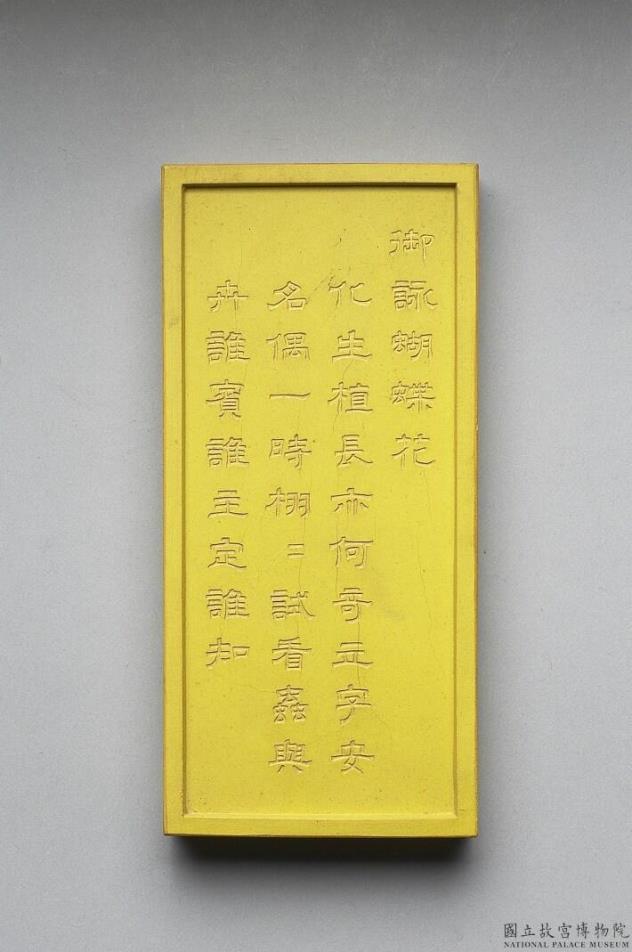 御詠蝴蝶花
化生植長亦何奇立字安
名偶一時栩〻試看蟲與
卉誰賓誰主定誰知
國立故宮博物院
NATIONAL PALACE MUSEUM